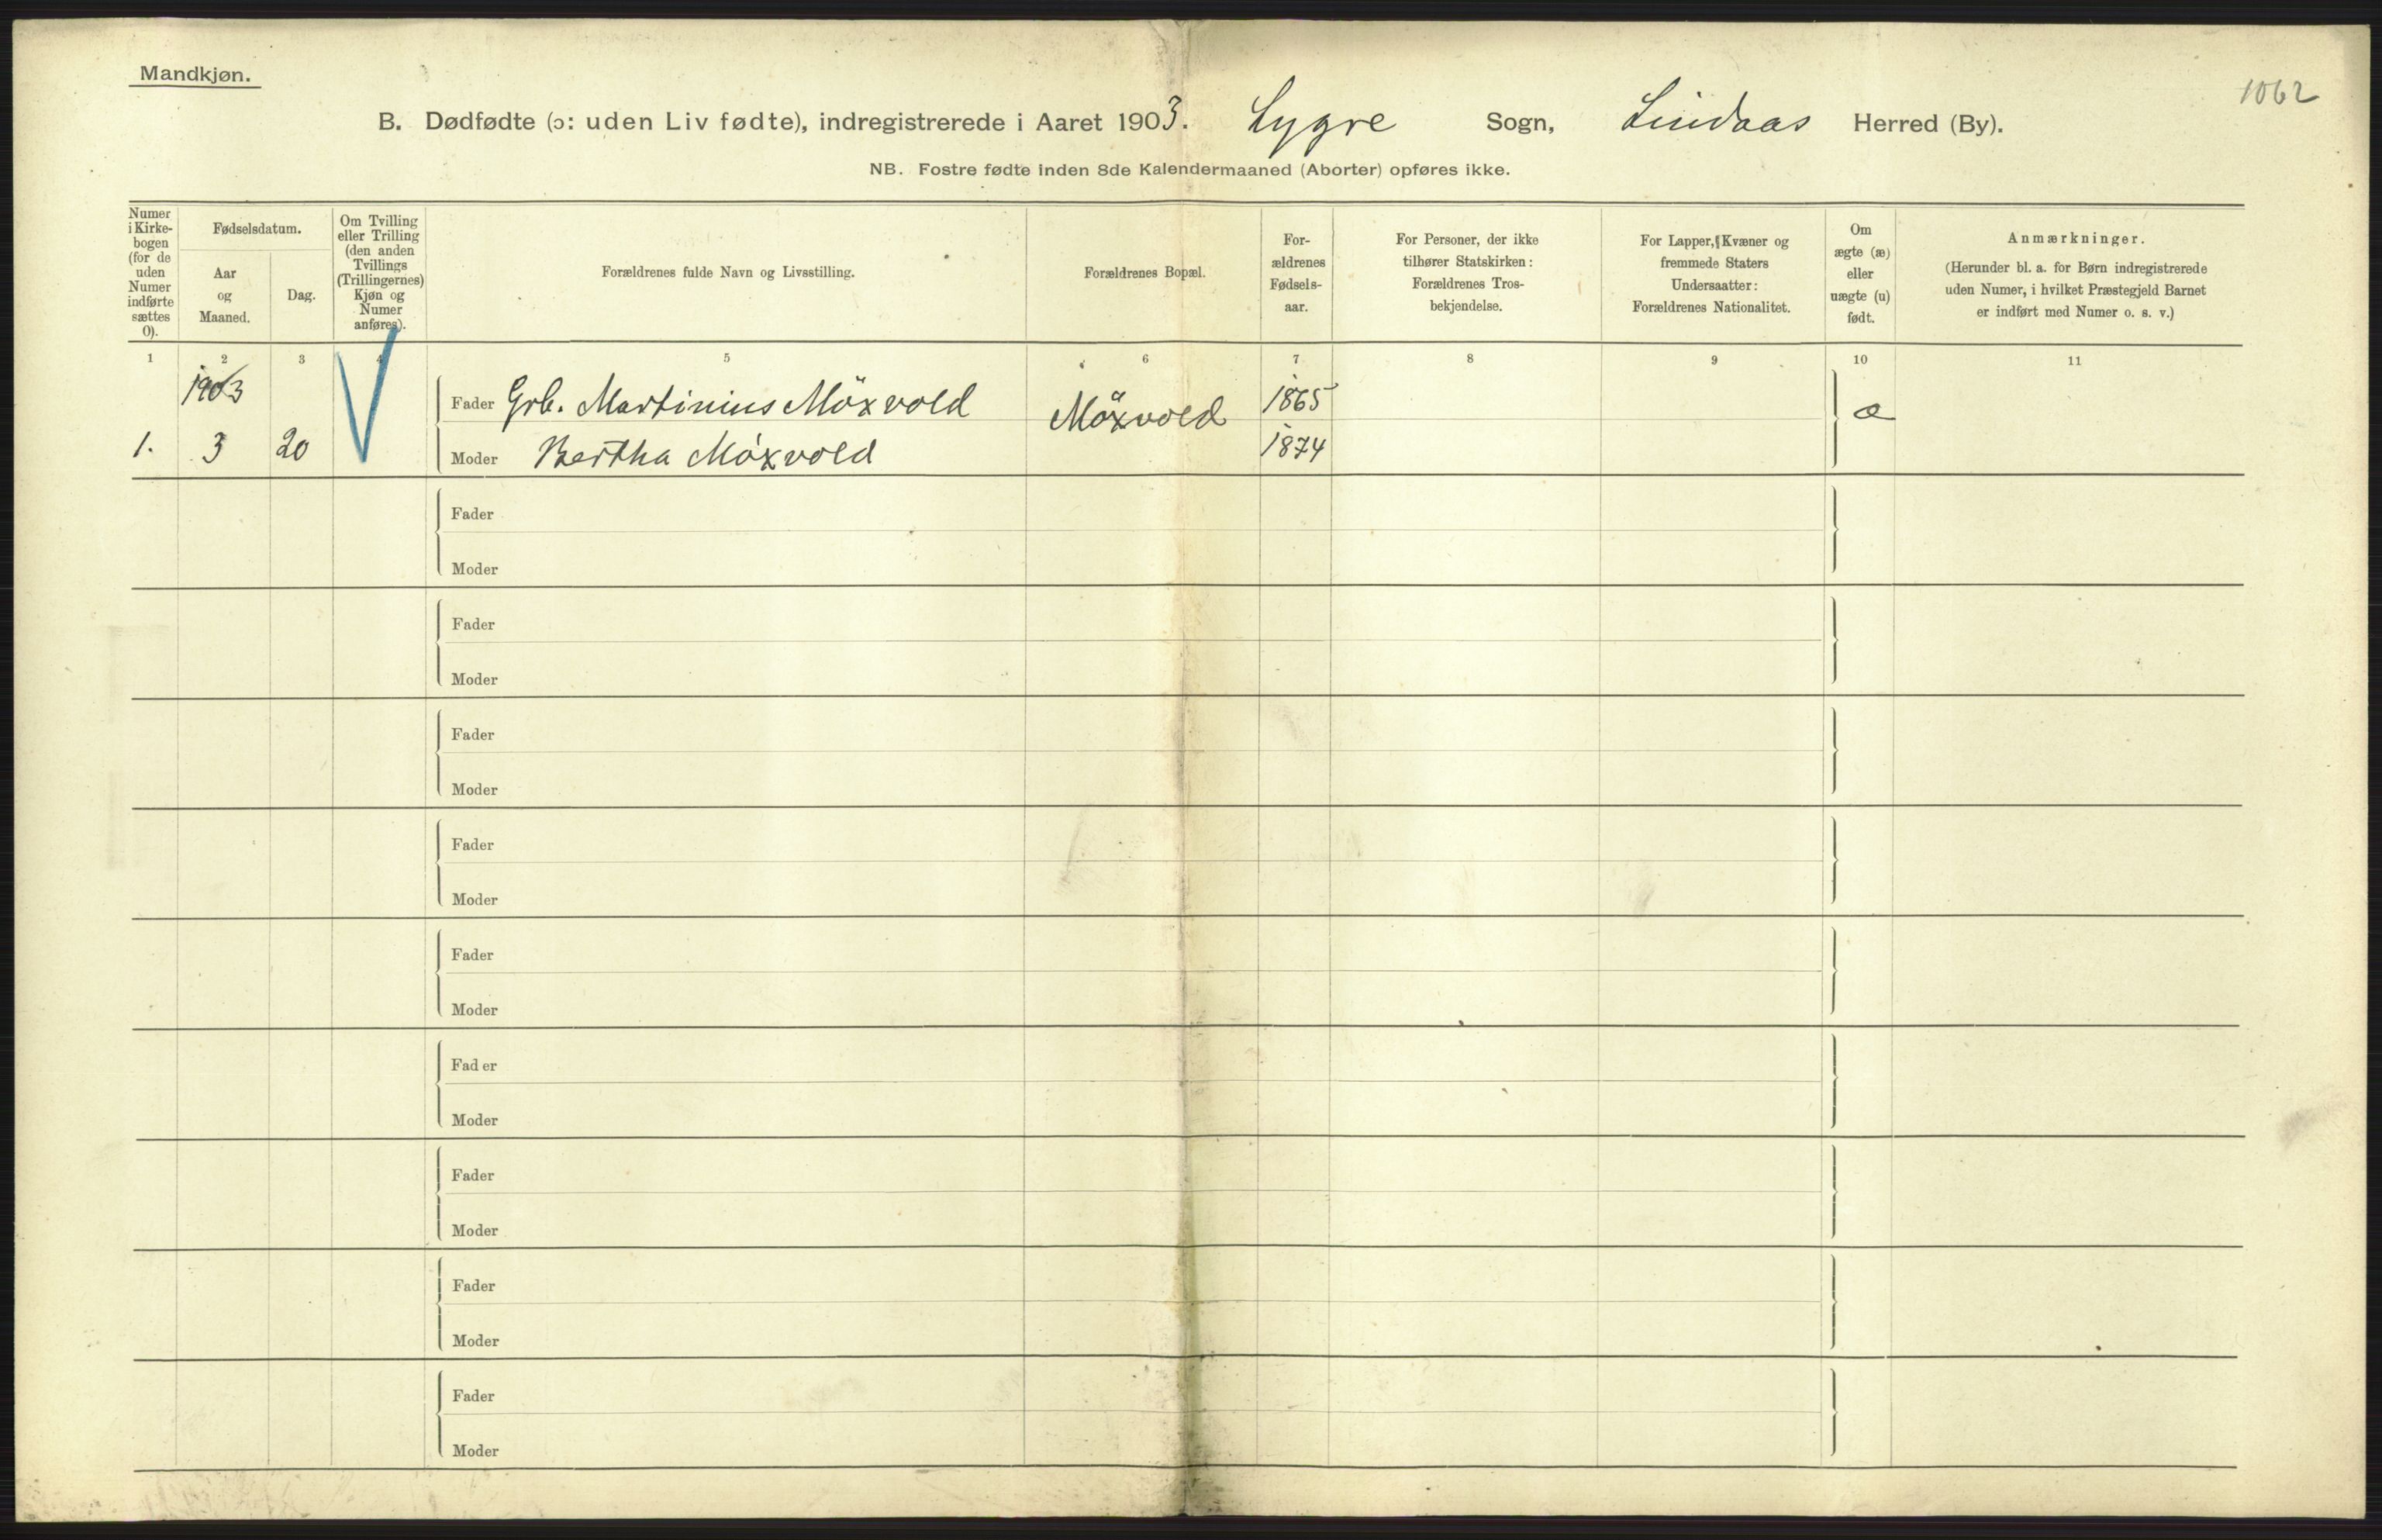 Mandkjøn.
1062
B. Dødfødte (ɔ: uden Liv fødte), indregistrerede i Aaret 1903. Lygre Sogn, Lindaas Herred (By).
NB. Fostre fødte inden 8de Kalendermaaned (Aborter) opføres ikke.
Numer i Kirke- bogen (for de uden Numer indførte sættes 0).
Fødselsdatum.
Aar og Maaned.
Dag.
Om Tvilling eller Trilling (den anden Tvillings (Trillingernes) Kjøn og Numer anføres).
Forældrenes fulde Navn og Livsstilling.
Forældrenes Bopæl.
For- ældrenes Fødsels- aar.
For Personer, der ikke tilhører Statskirken: Forældrenes Tros- bekjendelse.
For Lapper, Kvæner og fremmede Staters Undersaatter: Forældrenes Nationalitet.
Om ægte (æ) eller uægte (u) født.
Anmærkninger.
(Herunder bl. a. for Børn indregistrerede uden Numer, i hvilket Præstegjeld Barnet er indført med Numer o. s. v.)
1 2 3 4 5 6 7 8 9 10 11
1903
Fader Grb. Martinius Möxvold Möxvold 1865 æ
1. 3 20 Moder Bertha Möxvold 1874
Fader
Moder
Fader
Moder
Fader
Moder
Fader
Moder
Fader
Moder
Fader
Moder
Fader
Moder
Fader
Moder
Fader
Moder